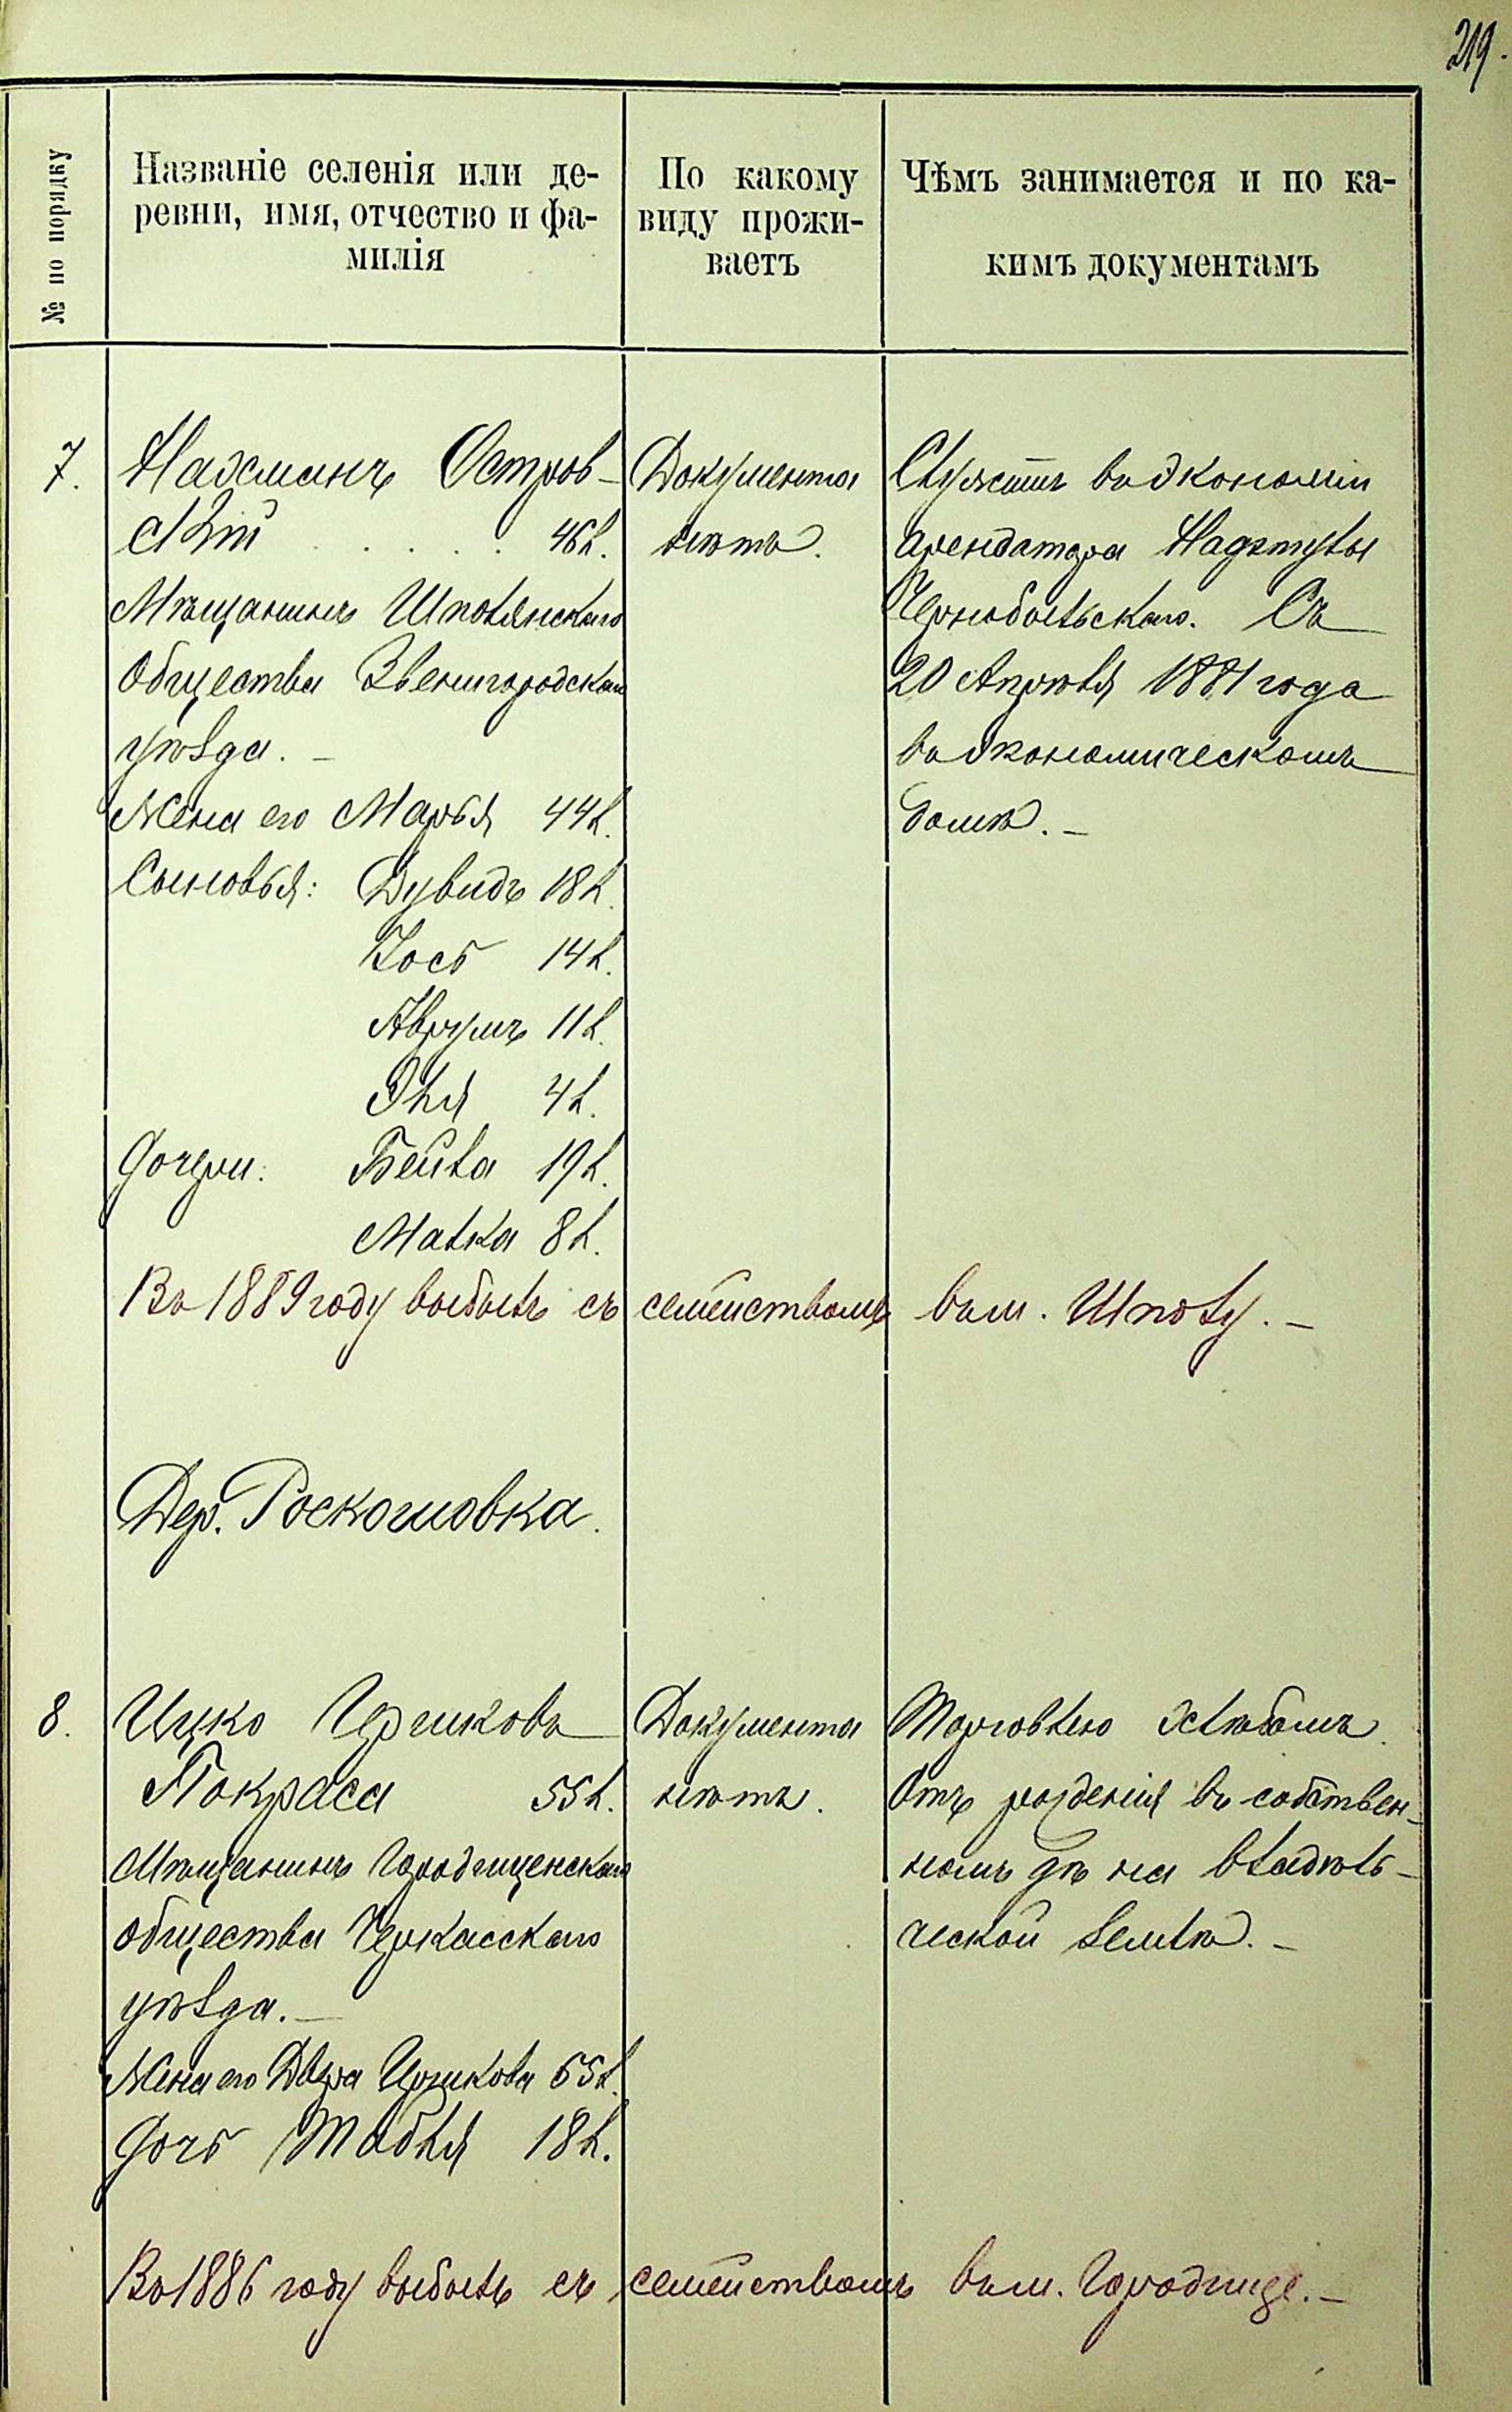 219.
№ по порядку
Названіе селенія или де-
ревни, имя, отчество и фа-
милія
По какому
виду прожи-
ваетъ
Чѣмъ занимается и по ка-
кимъ документамъ
7.
Нахманъ Остров-
скій . . . . 46 л.
Мѣщанинъ Шполянскаго
общества Звенигородскаго
уѣзда. —
Жена его Марья 44 л.
Сыновья: Дувидъ 18 л.
Іось 14 л.
Аврумъ 11 л.
Эля 4 л.
Дочери: Бейла 19 л.
Малка 8 л.
Документа
нѣтъ.
Служитъ въ экономіи
арендатора
Чернобыльскаго. Съ
20 Апрѣля 1881 года
въ экономическомъ
домѣ. —
Въ 1889 году выбылъ съ семействомъ въ м. Шполу. —
Дер. Роскошовка.
8.
Ицко Гершковъ
Покраса 55 л.
Мѣщанинъ Городищенскаго
общества Черкасскаго
уѣзда. —
Жена его Двера 55 л.
Дочь Табля 18 л.
Документа
нѣтъ.
Торговлею хлѣбомъ.
Отъ рожденія въ собствен-
номъ д-ѣ на владѣль-
ческой землѣ. —
Въ 1886 году выбылъ съ семействомъ въ м. Городище. —